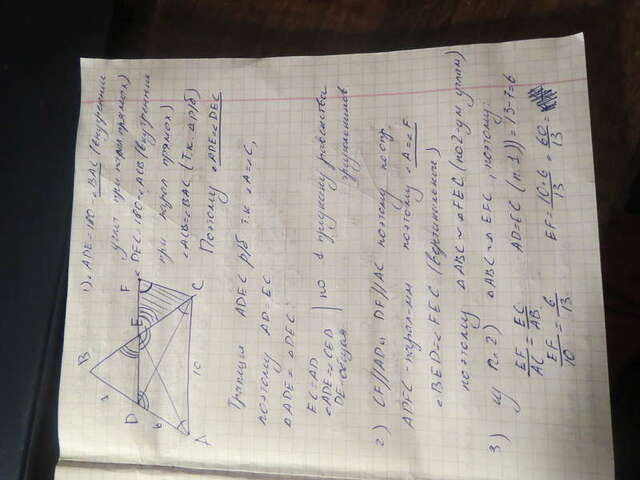 B
D
E
F
6
A
10
C
1) ∠ADE=180-∠BAC (внутренние
углы при парал прямых)
∠DEC=180-∠ACB (внутренние
при парал прямых)
∠ACB=∠BAC (т.к. △ р/б)
Поэтому ∠ADE=∠DEC
Трапеция ADEC р/б т.к ∠A=∠C,
поэтому AD=EC
△ADE=△DEC:
EC=AD
∠ADE=∠CED
DE-общая
по 1 признаку равенства
треугольников
2) CF//AD и DF//AC поэтому по опр
ADFC-парал-мм поэтому ∠A=∠F
∠BED=∠FEC (вертикальные)
поэтому △ABC~△FEC (по 2-ум углам)
3) из п.2) △ABC~△FEC, поэтому:
EF/AC = EC/AB AD=EC (п.1)) = 13-7=6
EF/10 = 6/13 EF= 10·6/13 = 60/13 =